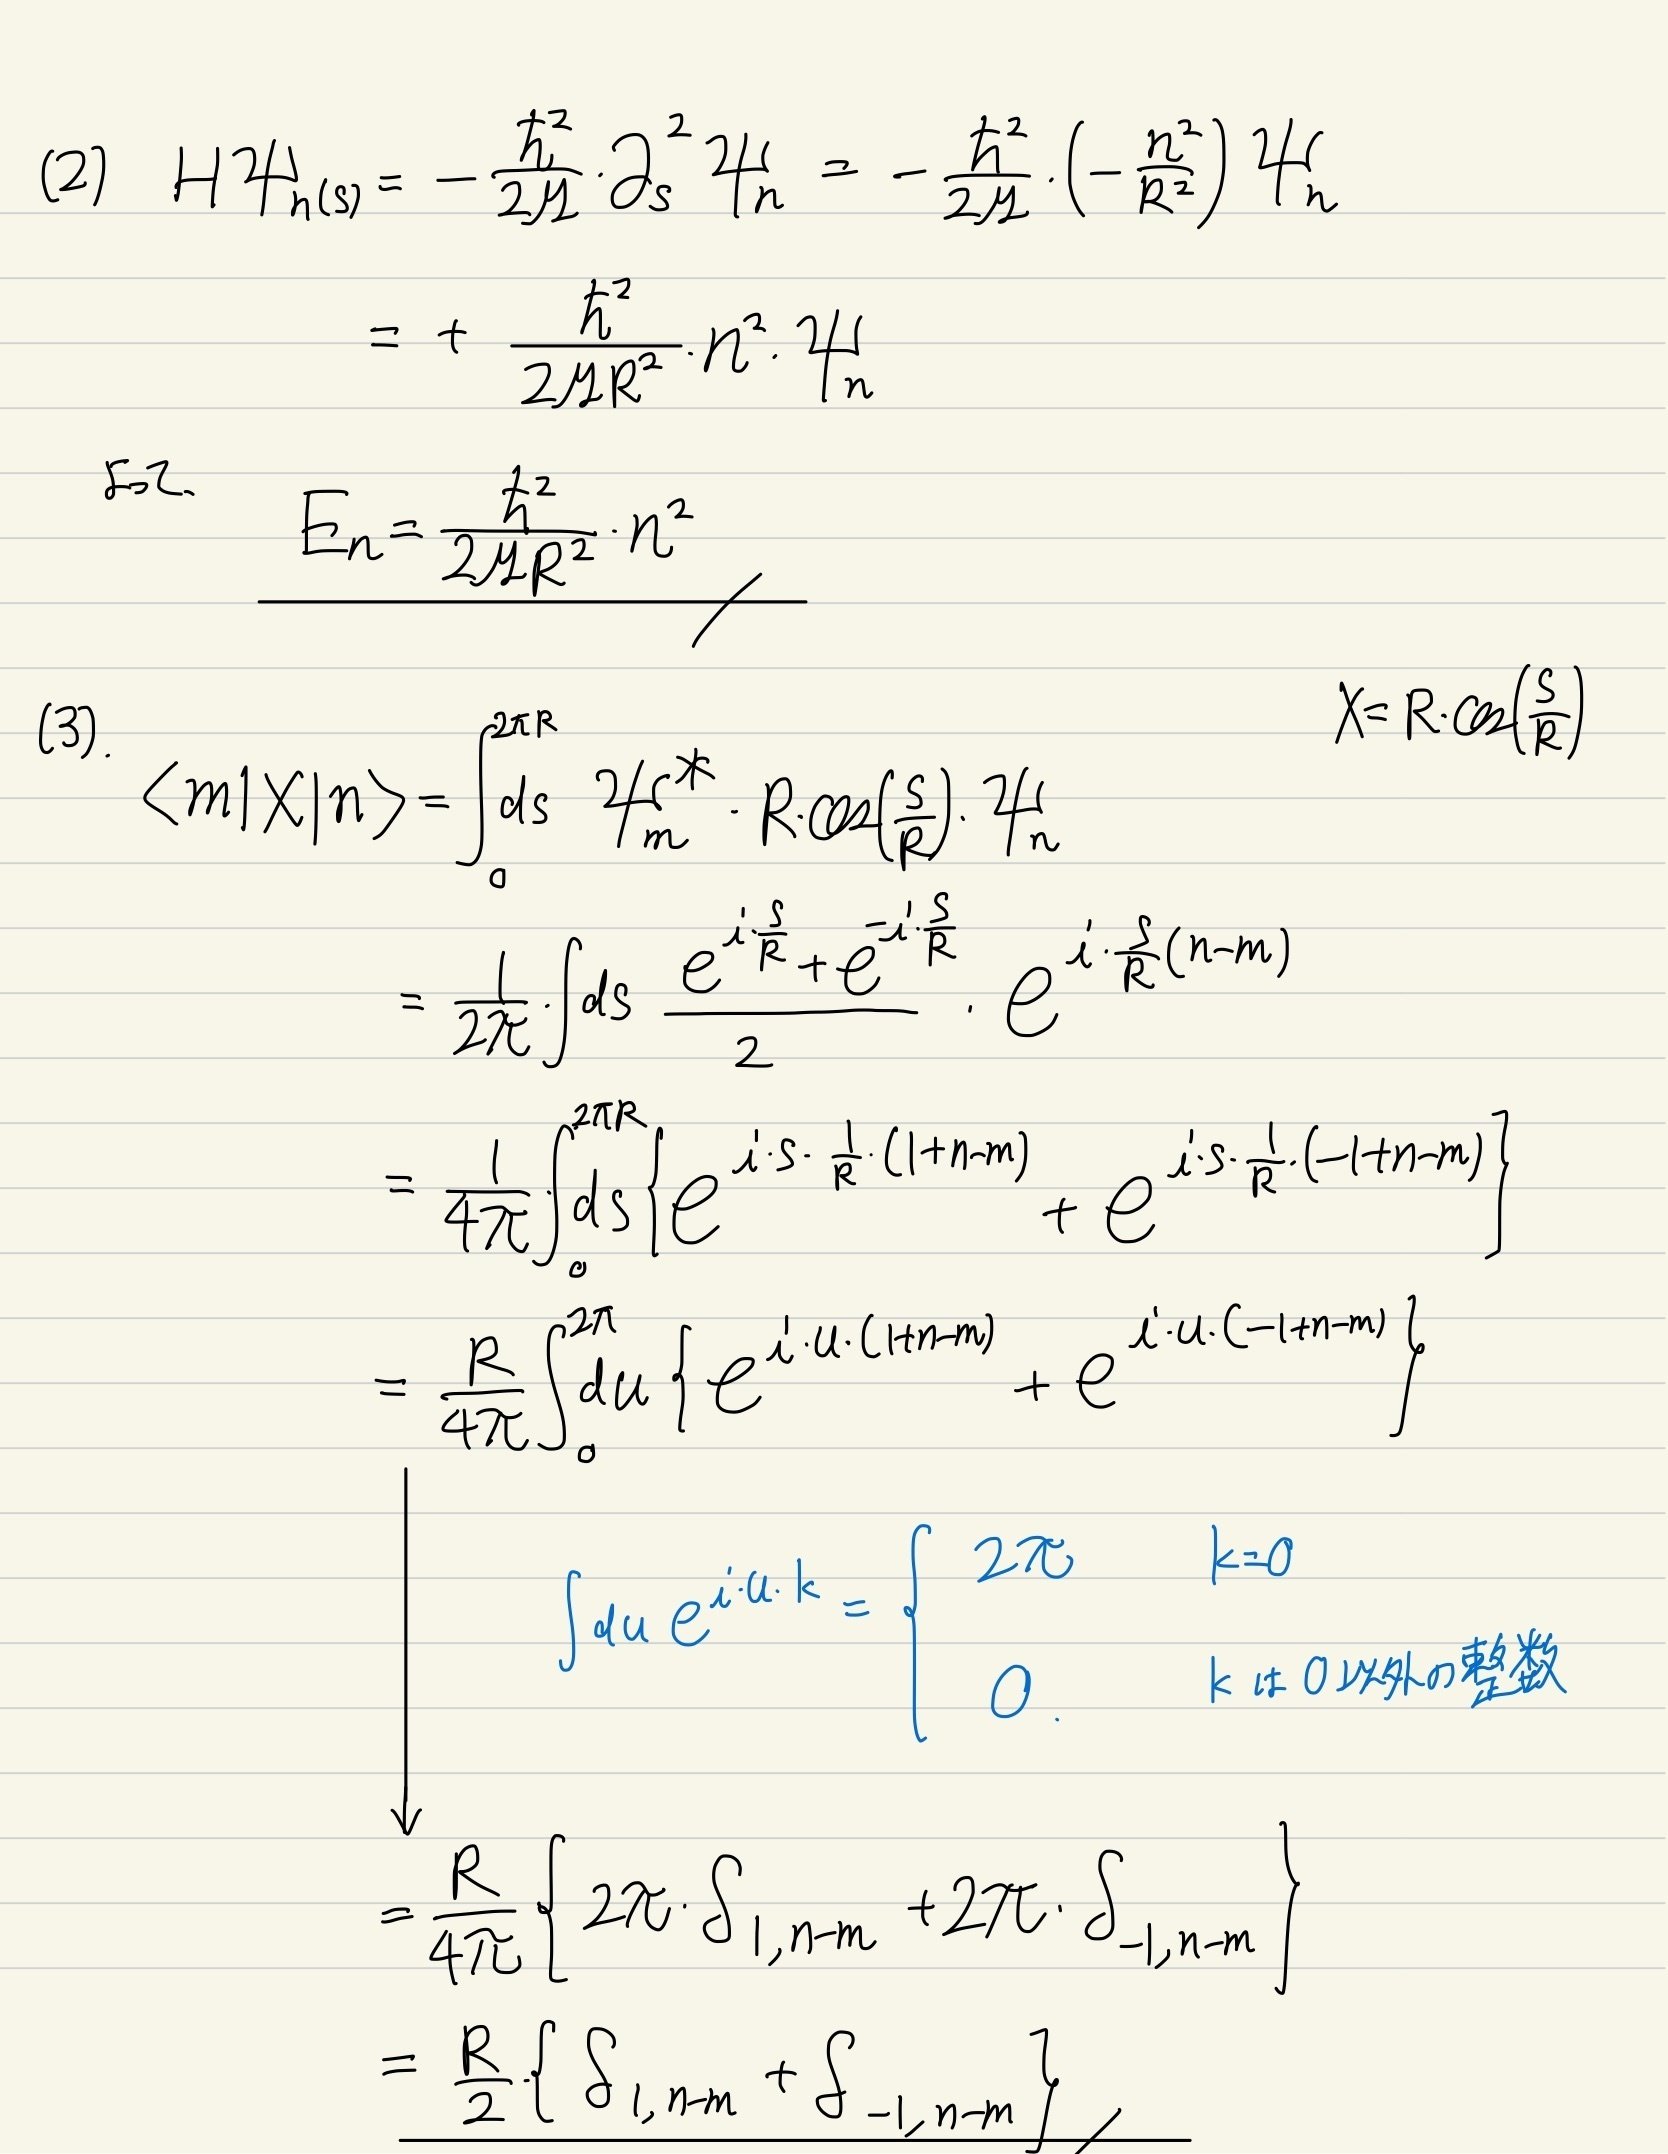 (2) Hψ_n(s) = -ℏ²/2μ · ∂_s² ψ_n = -ℏ²/2μ · (-n²/R²) ψ_n
= + ℏ²/2μR² · n² · ψ_n
よって、 E_n = ℏ²/2μR² · n²
X = R·cos(s/R)
(3). <m|X|n> = ∫_0^{2πR} ds ψ_m^* · R·cos(s/R) · ψ_n
= 1/2π · ∫ ds (e^{i·s/R} + e^{-i·s/R})/2 · e^{i·s/R(n-m)}
= 1/4π ∫_0^{2πR} ds {e^{i·s·1/R·(1+n-m)} + e^{i·s·1/R·(-1+n-m)}}
= R/4π ∫_0^{2π} du {e^{i·u·(1+n-m)} + e^{i·u·(-1+n-m)}}
∫ du e^{i·u·k} = { 2π k=0
0. kは0以外の整数
= R/4π {2π·δ_{1,n-m} + 2π·δ_{-1,n-m}}
= R/2 · {δ_{1,n-m} + δ_{-1,n-m}}